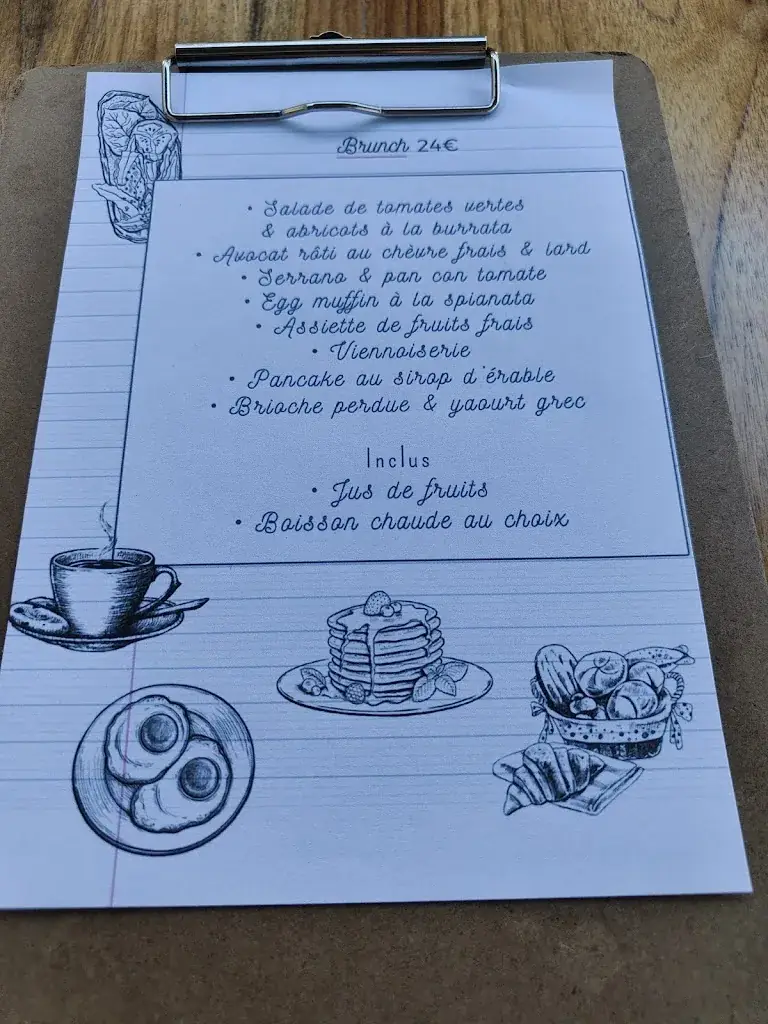 Brunch 24€
• Salade de tomates vertes
& abricots à la burrata
• Avocat rôti au chèvre frais & lard
• Serrano & pan con tomate
• Egg muffin à la spianata
• Assiette de fruits frais
• Viennoiserie
• Pancake au sirop d'érable
• Brioche perdue & yaourt grec
Inclus
• Jus de fruits
• Boisson chaude au choix